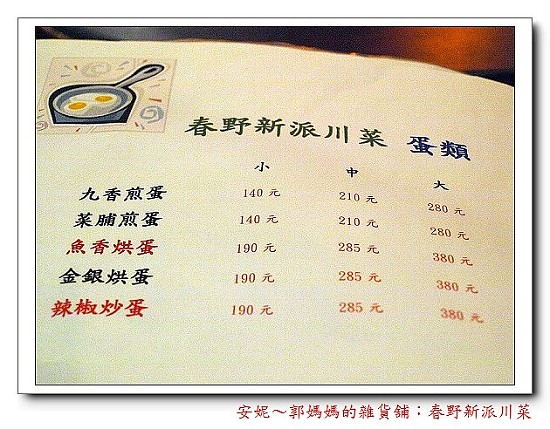 春野新派川菜 蛋類
小 中 大
九香煎蛋 140 元 210 元 280 元
菜脯煎蛋 140 元 210 元 280 元
魚香烘蛋 190 元 285 元 380 元
金銀烘蛋 190 元 285 元 380 元
辣椒炒蛋 190 元 285 元 380 元
安妮～郭媽媽的雜貨舖：春野新派川菜